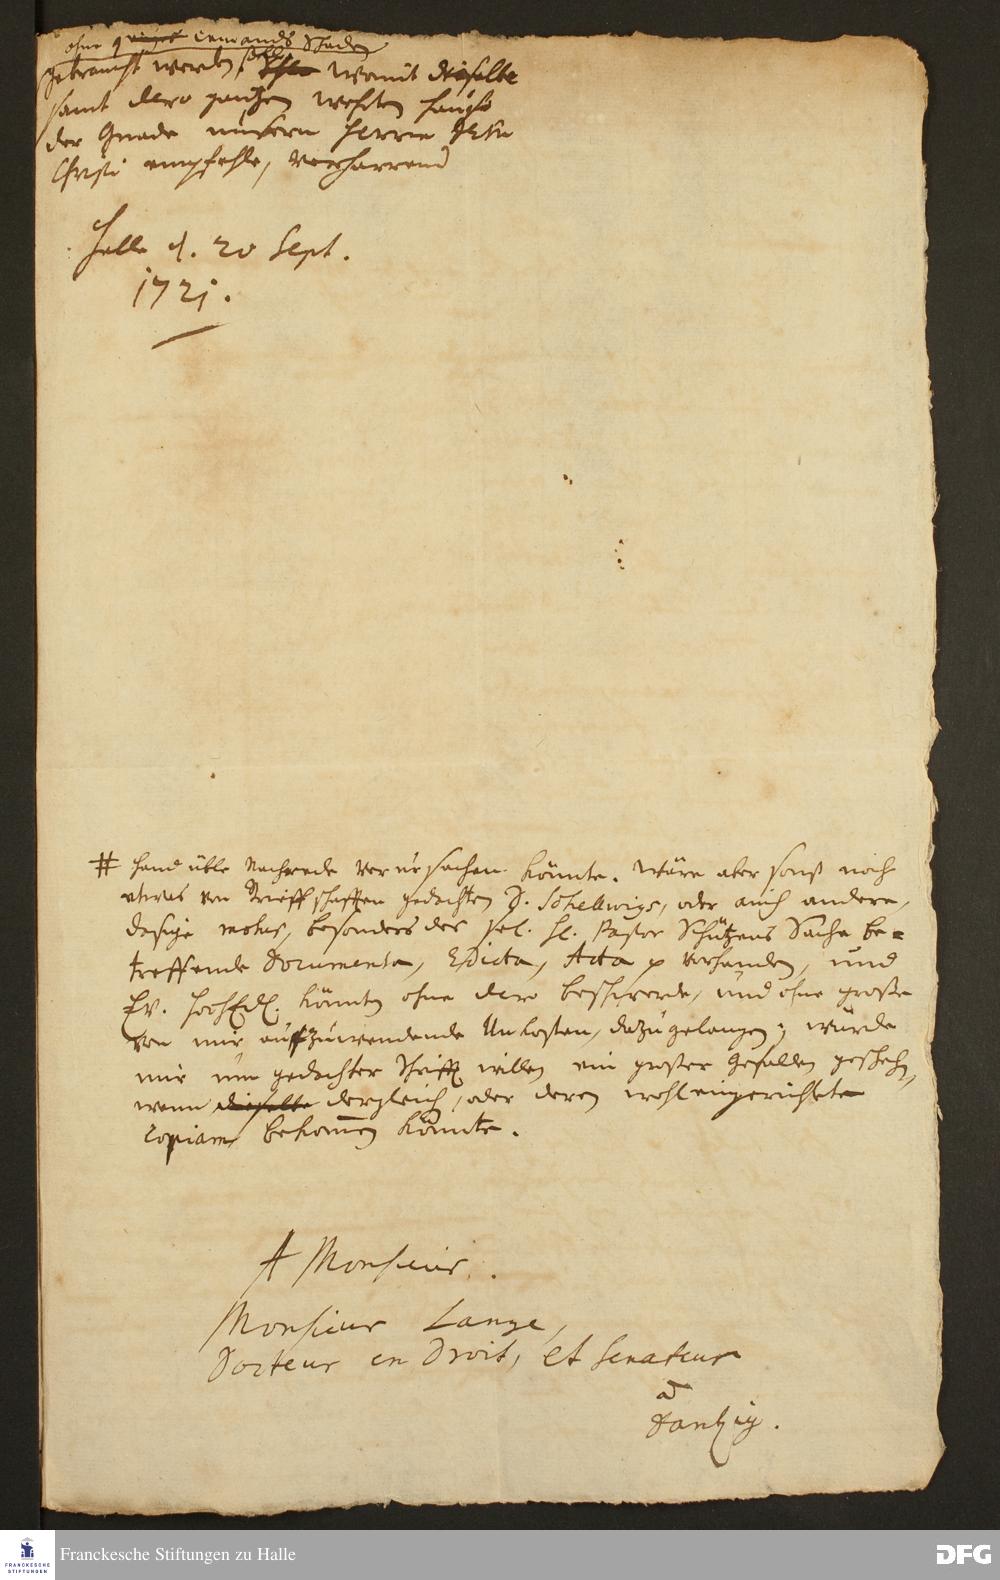 ohne iemands Schaden
gebraucht werden soll. Womit dieselbe
samt dero gantzen wehrten Hause
der Gnade unsern Herrn JEsu
Christi empfehle, verharrend
Halle d. 20 Sept.
1721.
# hand üble Nachrede verursachen könte. Wäre aber sonst noch
etwas von Brieffschafften gedachten D. Schellwigs, oder auch andere,
dasige motus, besonders des sel. H. Pastor Schützens Sache be-
treffende Documenta, Edicta, Acta p vorhanden, und
Ew. HochEdl. könnten ohne dero beschwerde, und ohne große
von mir aufzuwendende Unkosten, dazu gelangen; würde
mir um gedachter Schrifft willen ein großer Gefallen geschehen,
wenn dieselbe dergleich, oder deren wohleingerichtete
copiam bekommen könnte.
A Monsieur.
Monsieur Lange,
Docteur en Droit, et Senateur
a
Dantzig.
FRANCKESCHE
STIFTUNGEN
Franckesche Stiftungen zu Halle
DFG